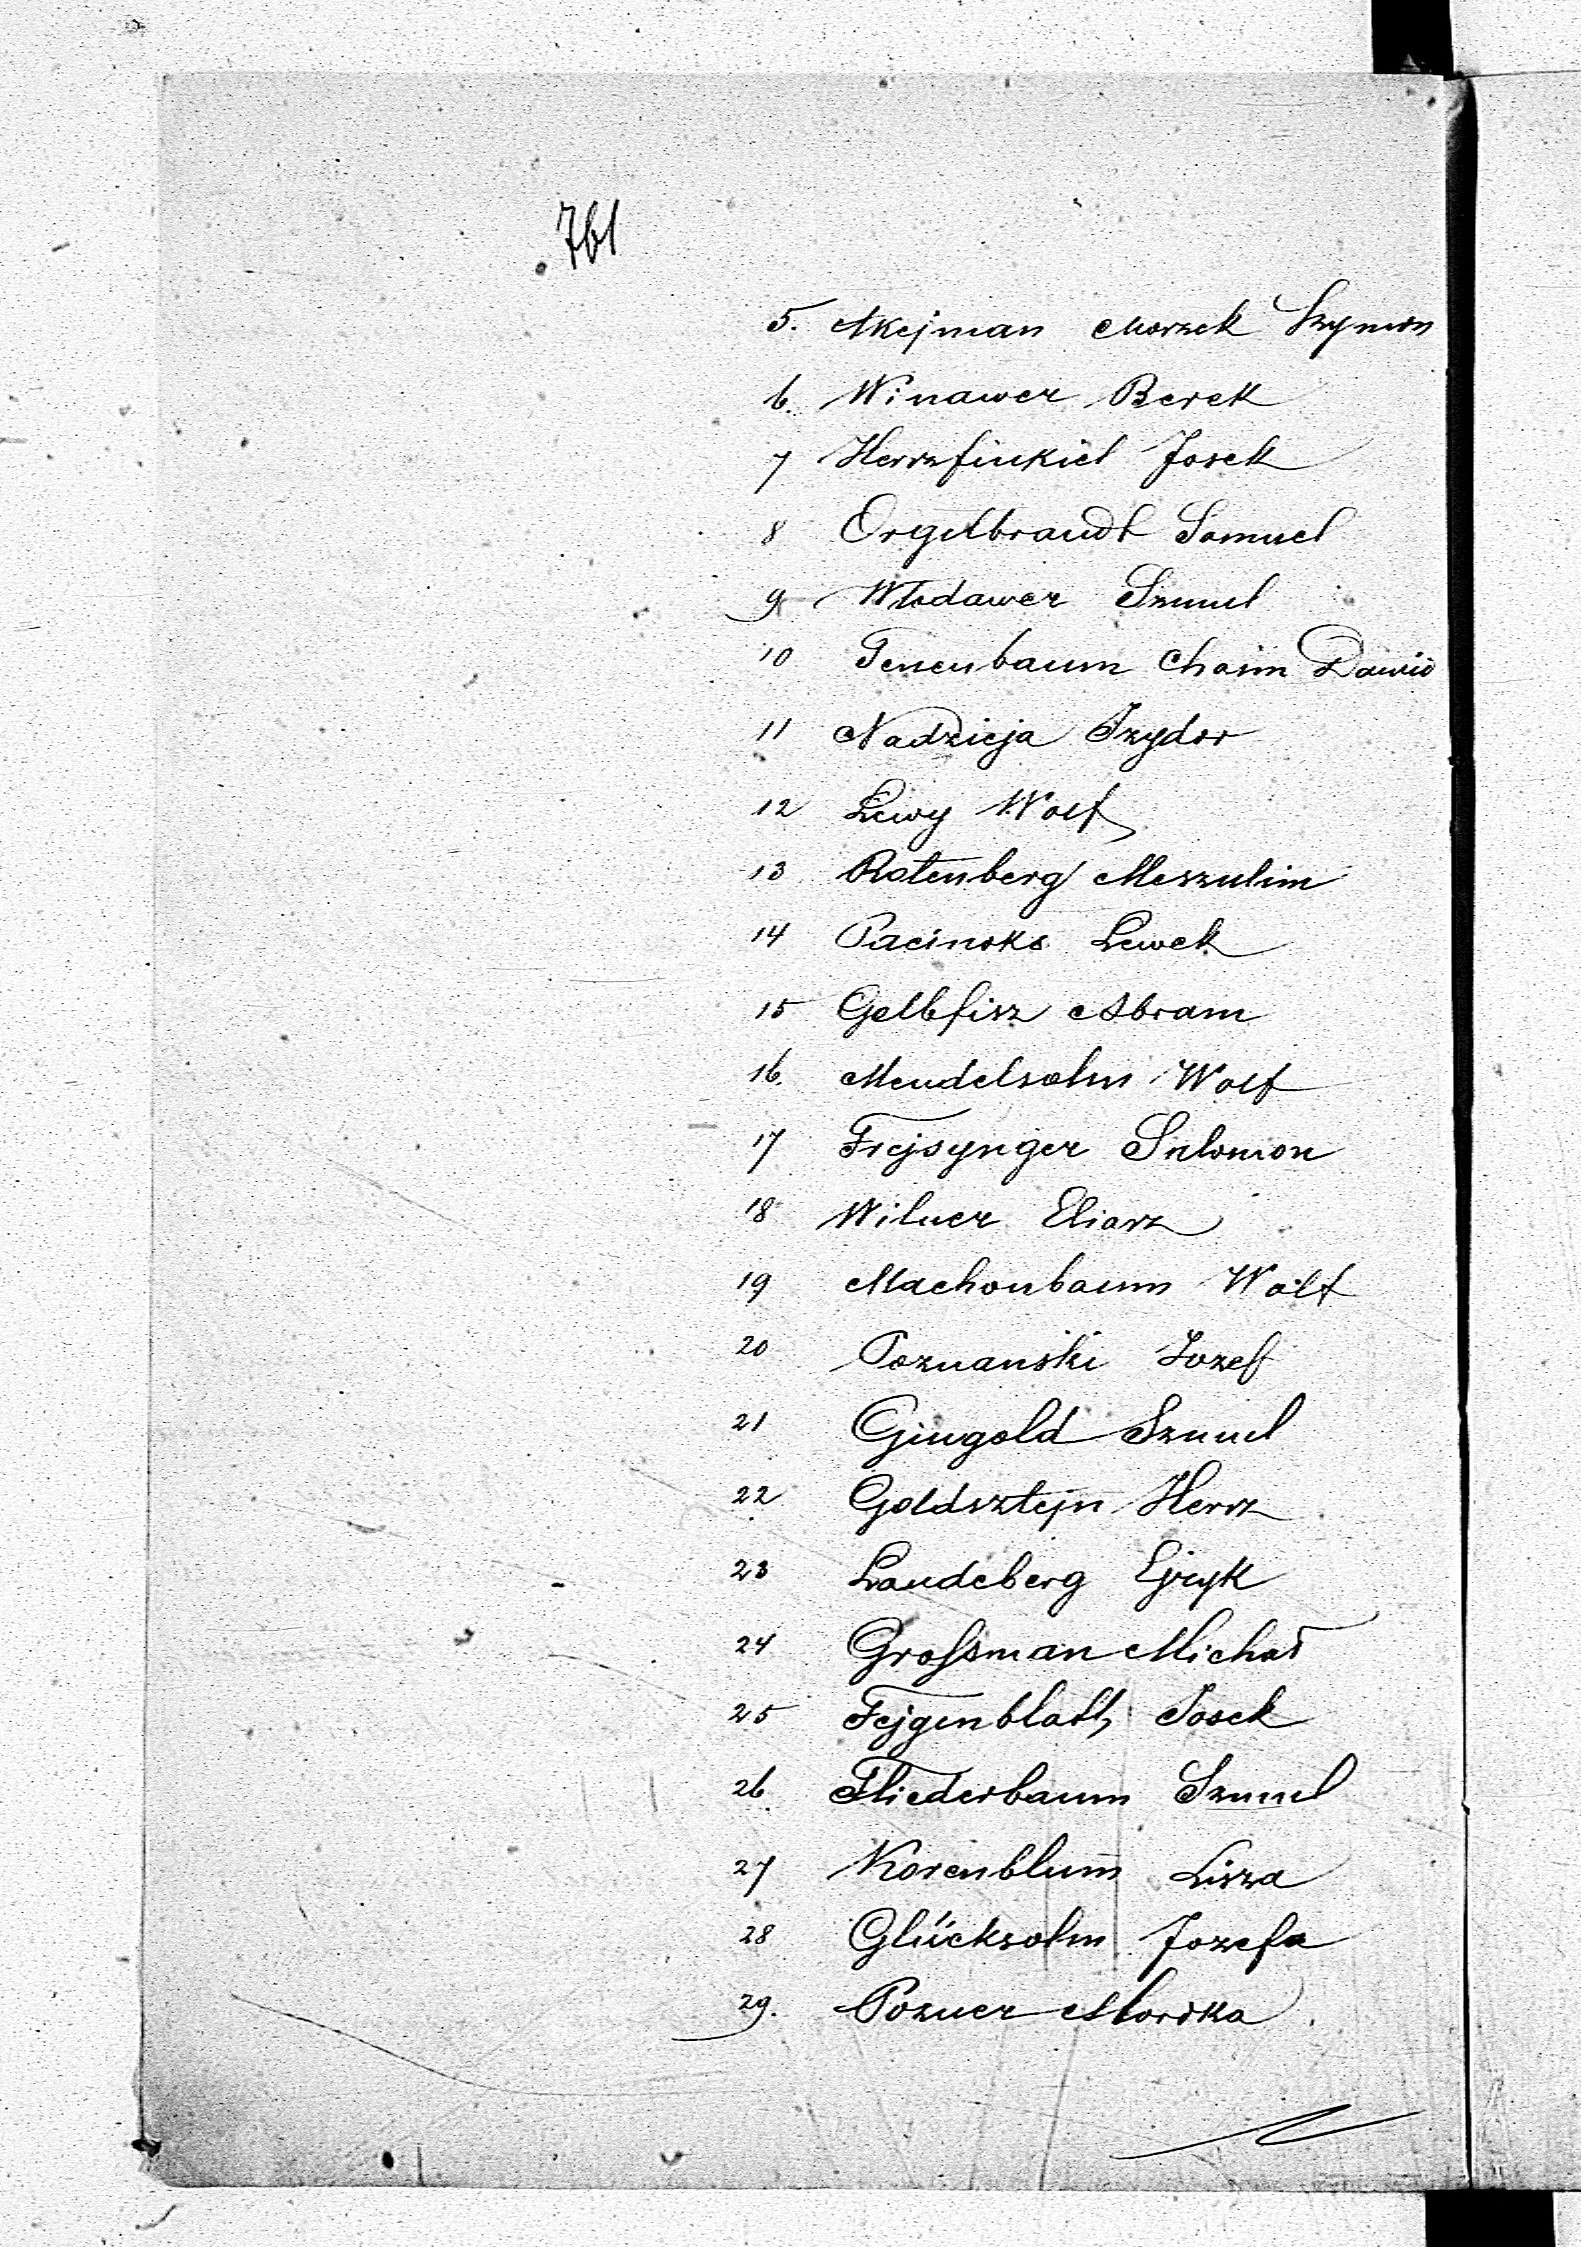 761
5. Akejman Moszek Szymon
6. Winawer Berek
7 Herszfinkiel Josek
8 Orgelbrandt Samuel
9 Włodawer Szmul
10 Tenenbaum Chaim Dawid
11 Nadzieja Izydor
12 Lewy Wolf
13 Rotenberg Meszulim
14 Pacinoks Lewek
15 Gelbfisz Abram
16. Mendelsohn Wolf
17 Frejsynger Salomon
18 Wilner Eliasz
19 Machonbaum Wolf
20 Poznanski Jozef
21 Gingold Szmul
22 Goldsztejn Hersz
23 Landeberg Ejzyk
24 Grossman Michał
25 Fejgenblatt Josek
26 Fliederbaum Szmul
27 Korenblum Lisza
28 Glücksohn Jozefa
29. Pozner Moszka